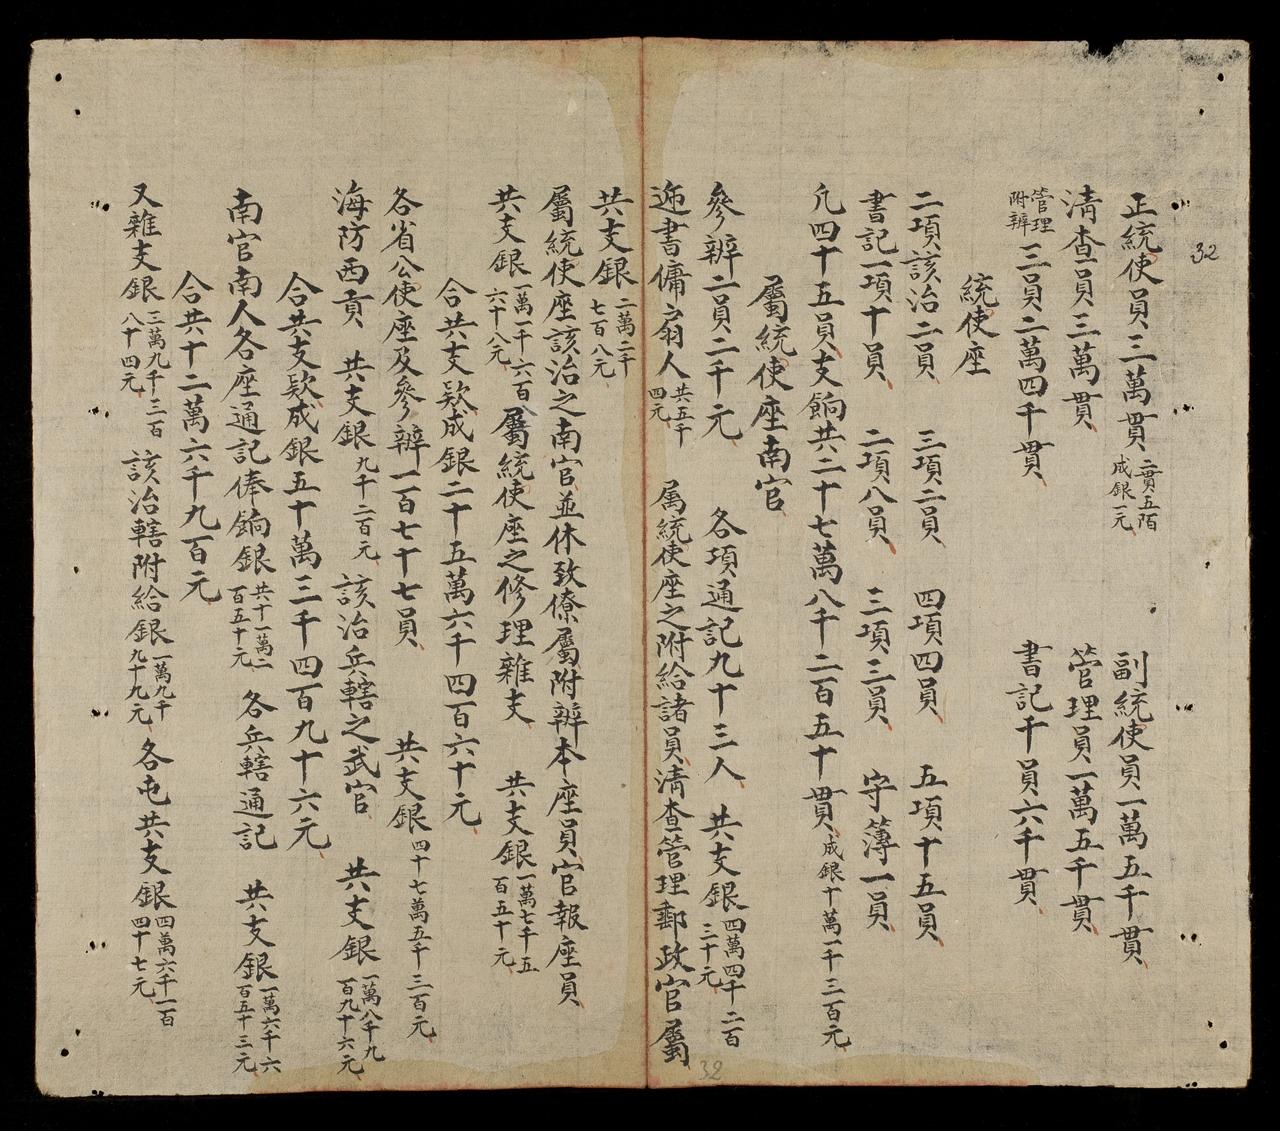 32
正統使員三萬貫 二貫五陌成銀一元 副統使員一萬五千貫
清查員三萬貫 管理員一萬五千貫
管理附辦 三員二萬四千貫 書記千員六千貫
統使座
二項該治二員 三項二員 四項四員 五項十五員
書記一項十員 二項八員 三項三員 守簿一員
凡四十五員支餉共二十七萬八千二百五十貫 成銀十萬一千三百元
屬統使座南官
參辦二員二千元 各項通記九十三人 共支銀 四萬四千二百三十元
迎書傭扇人 共五千四元 属統使座之附給諸員清查管理郵政官屬
共支銀 二萬二千七百八元
屬統使座該治之南官並休致僚屬附辦本座員官報座員
共支銀 一萬一千六百六十八元 屬統使座之修理雜支 共支銀 一萬七千五百五十元
合共支欵成銀二十五萬六千四百六十元
各省公使座及參辦一百七十七員 共支銀 四十七萬五千三百元
海防西貢 共支銀 九千二百元 該治兵轄之武官 共支銀 一萬八千九百九十六元
合共支欵成銀五十萬三千四百九十六元
南官南人各座通記俸餉銀 共十一萬二百五十元 各兵轄通記 共支銀 一萬六千六百五十三元
合共十二萬六千九百元
又雜支銀 三萬九千三百八十四元 該治轄附給銀 一萬九千九十九元 各屯共支銀 四萬六千一百四十七元
32